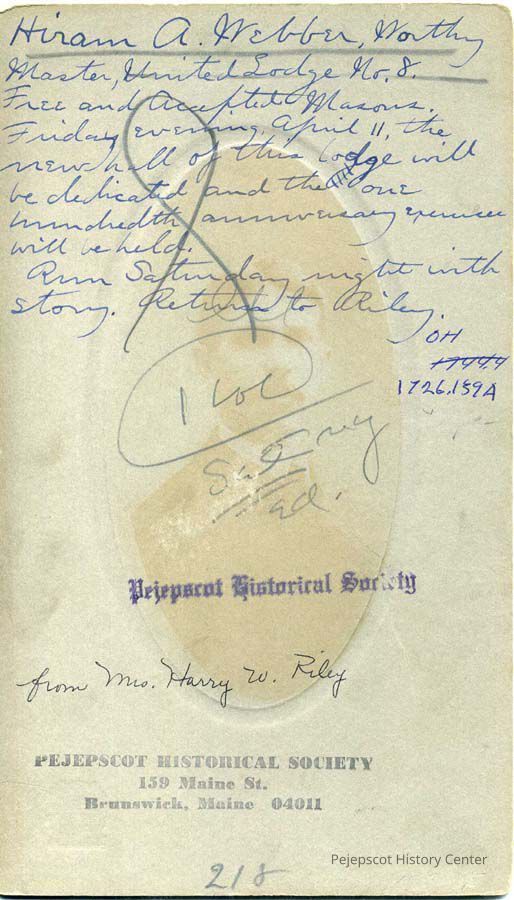 Hiram A. Webber, Worthy
Master, United Lodge No. 8.
Free and Accepted Masons.
Friday evening, April 11, the
new hall of this lodge will
be dedicated and the one
hundredth anniversary exercises
will be held.
Run Saturday night with
story. Return to Riley.
OH
1726.159A
1 col
Sat
ad.
Pejepscot Historical Society
from Mrs. Harry W. Riley
PEJEPSCOT HISTORICAL SOCIETY
159 Maine St.
Brunswick, Maine 04011
218
Pejepscot History Center